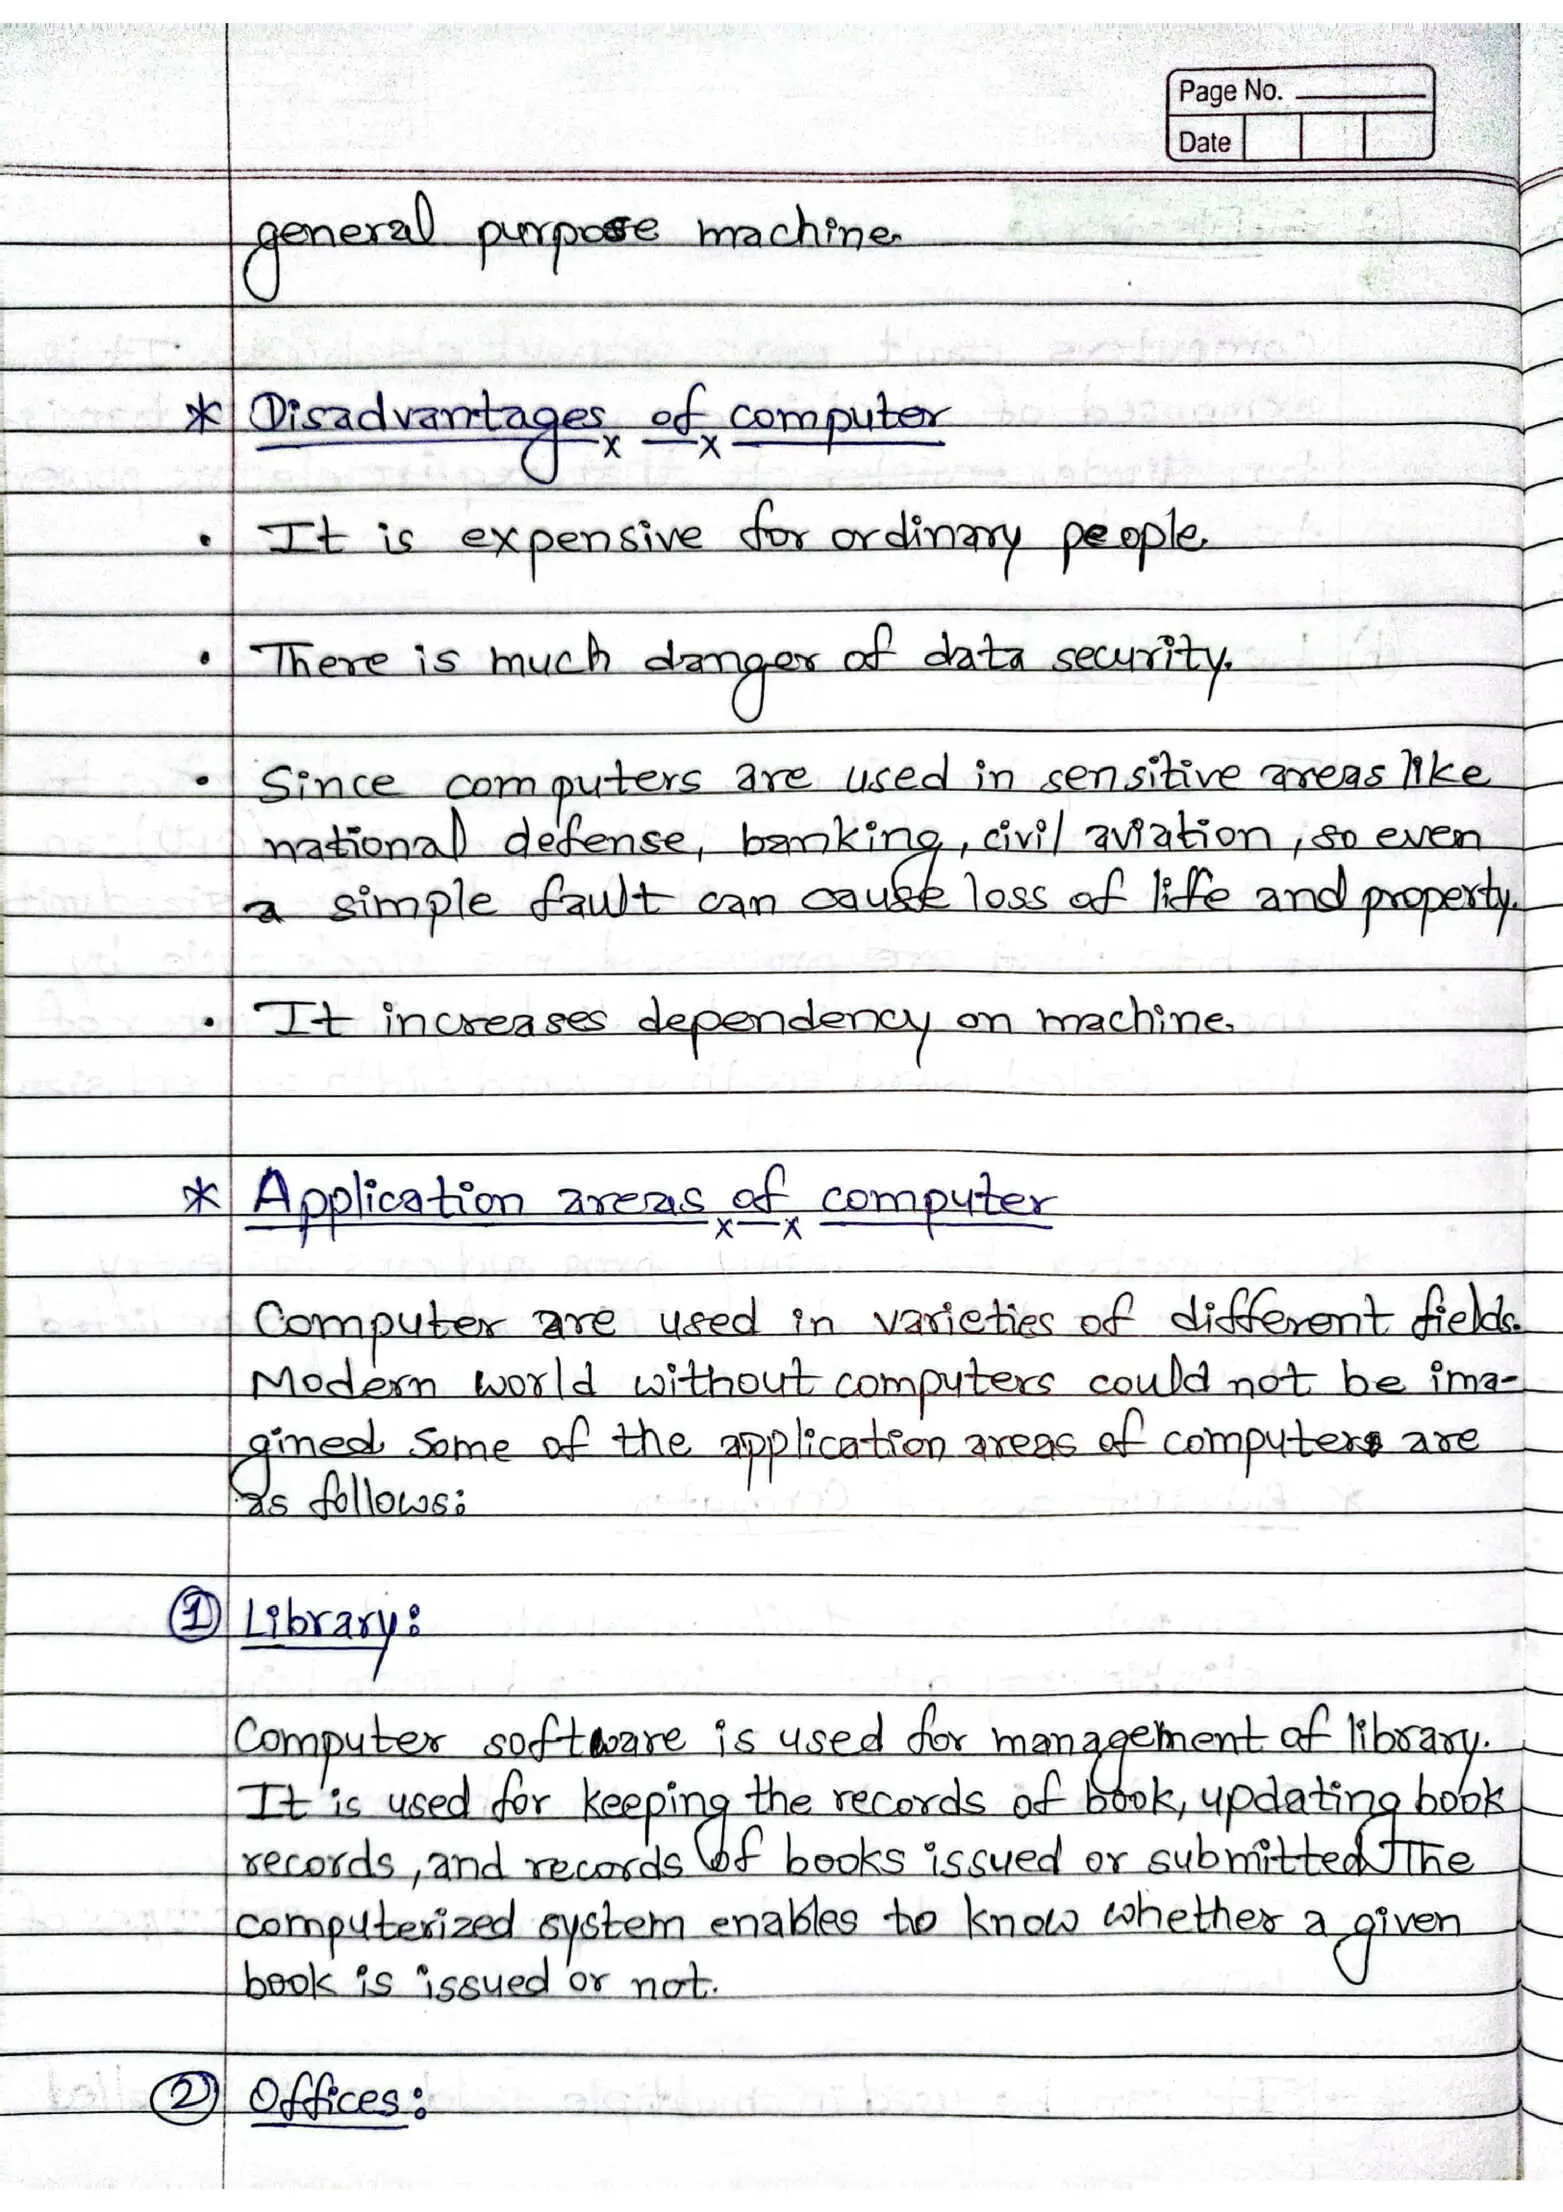 Page No.
Date
general purpose machine.
* Disadvantages of computer
• It is expensive for ordinary people.
• There is much danger of data security.
• Since computers are used in sensitive areas like
national defense, banking, civil aviation, so even
a simple fault can cause loss of life and property.
• It increases dependency on machine.
* Application areas of computer
Computer are used in varieties of different fields.
Modern world without computers could not be ima-
gined. Some of the application areas of computers are
as follows:
1 Library:
Computer software is used for management of library.
It is used for keeping the records of book, updating book
records, and records of books issued or submitted. The
computerized system enables to know whether a given
book is issued or not.
2 Offices: